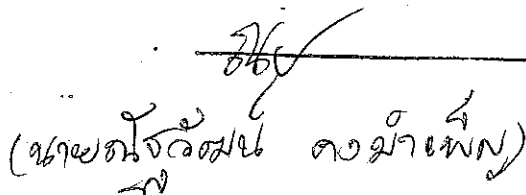 (นายณัฐวัฒน์ คงบำเพ็ญ)